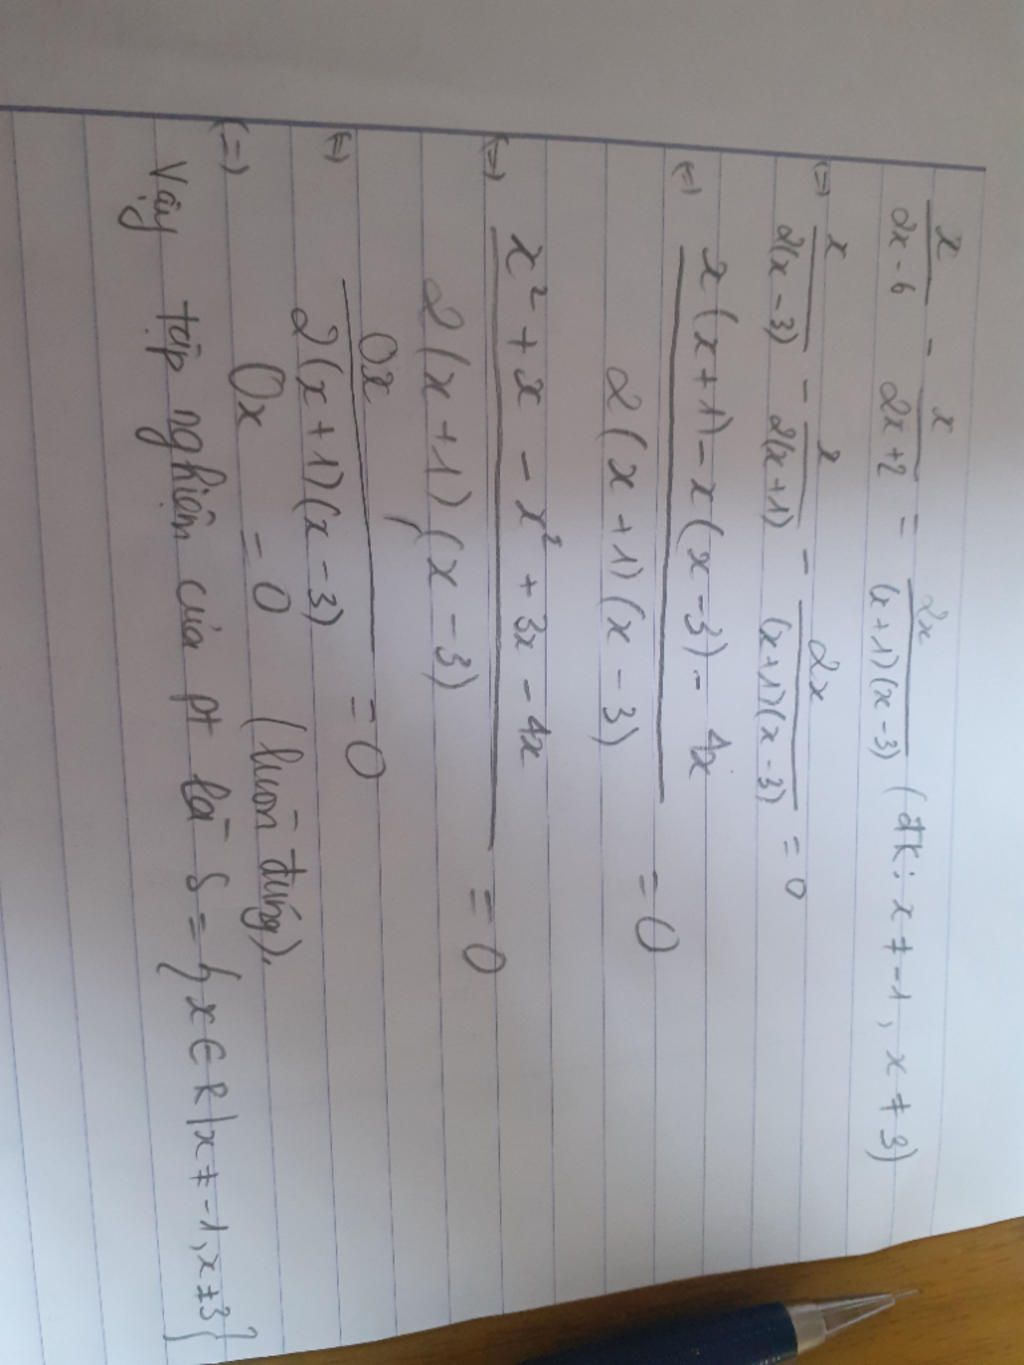 x/(2x-6) - x/(2x+2) = 2x/((x+1)(x-3)) (đk: x ≠ -1, x ≠ 3)
(=) x/(2(x-3)) - x/(2(x+1)) - 2x/((x+1)(x-3)) = 0
(=) (x(x+1) - x(x-3) - 4x)/(2(x+1)(x-3)) = 0
(=) (x² + x - x² + 3x - 4x)/(2(x+1)(x-3)) = 0
(=) 0x/(2(x+1)(x-3)) = 0
(=) 0x = 0 (luôn đúng).
Vậy tập nghiệm của pt là S = {x ∈ R | x ≠ -1, x ≠ 3}